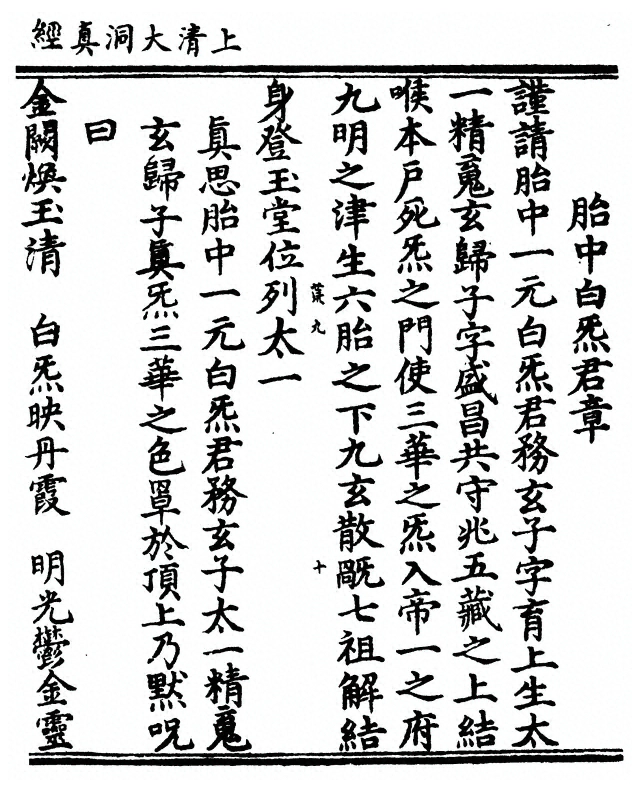 上清大洞真經
胎中白炁君章
謹請胎中一元白炁君務玄子字育上生太
一精䰟玄歸子字盛昌共守兆五藏之上結
喉本戶死炁之門使三華之炁入帝一之府
九明之津生六胎之下九玄散㽅七祖解結
葉九 十
身登玉堂位列太一
真思胎中一元白炁君務玄子太一精䰟
玄歸子真炁三華之色罩於頂上乃默呪
曰
金闕煥玉清 白炁映丹霞 明光鬱金靈